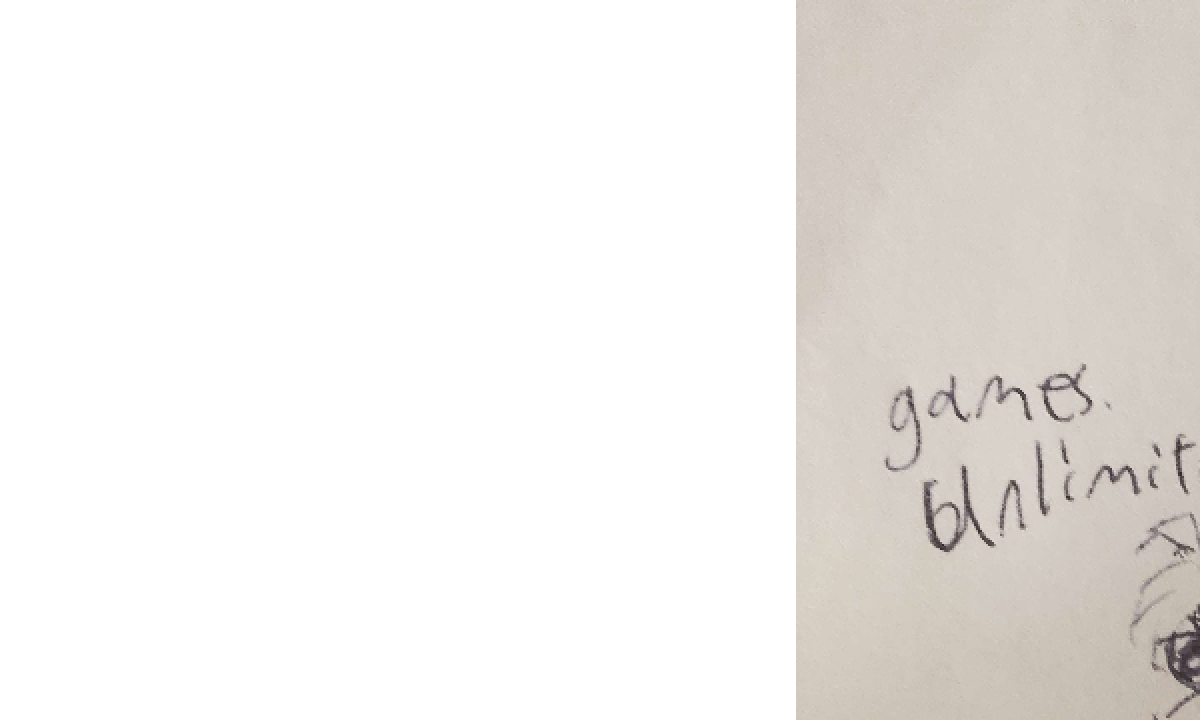 games.
Unlimit